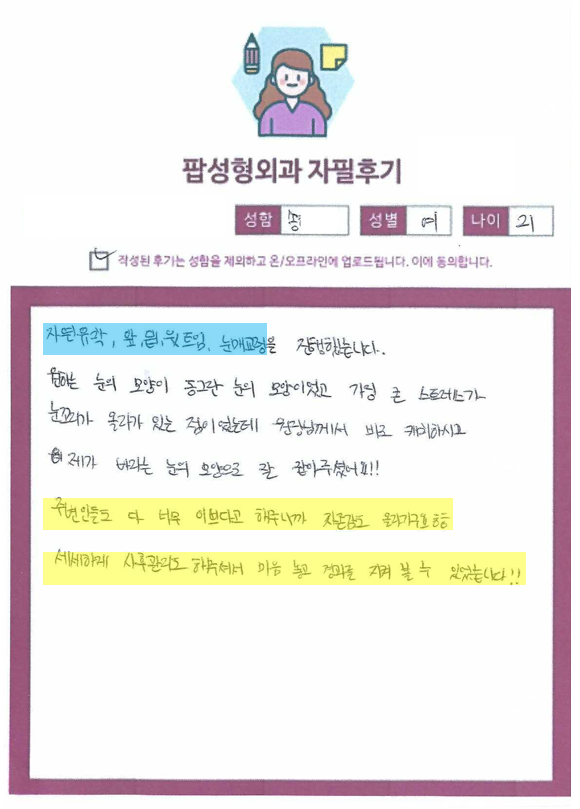 팝성형외과 자필후기
성함 송 성별 여 나이 21
작성된 후기는 성함을 제외하고 온/오프라인에 업로드됩니다. 이에 동의합니다.
자연유착, 앞,뒤,윗트임, 눈매교정을 진행했습니다.
원하는 눈의 모양이 동그란 눈의 모양이었고 가장 큰 스트레스가
눈꼬리가 올라가 있는 점이었는데 원장님께서 바로 캐치하시고
제가 바라는 눈의 모양으로 잘 잡아주셨어요!!!
주변인들도 다 너무 이쁘다고 해주니까 자존감도 올라가구요 ㅎㅎ
세세하게 사후관리도 해주셔서 마음 놓고 경과를 지켜 볼 수 있었습니다!!